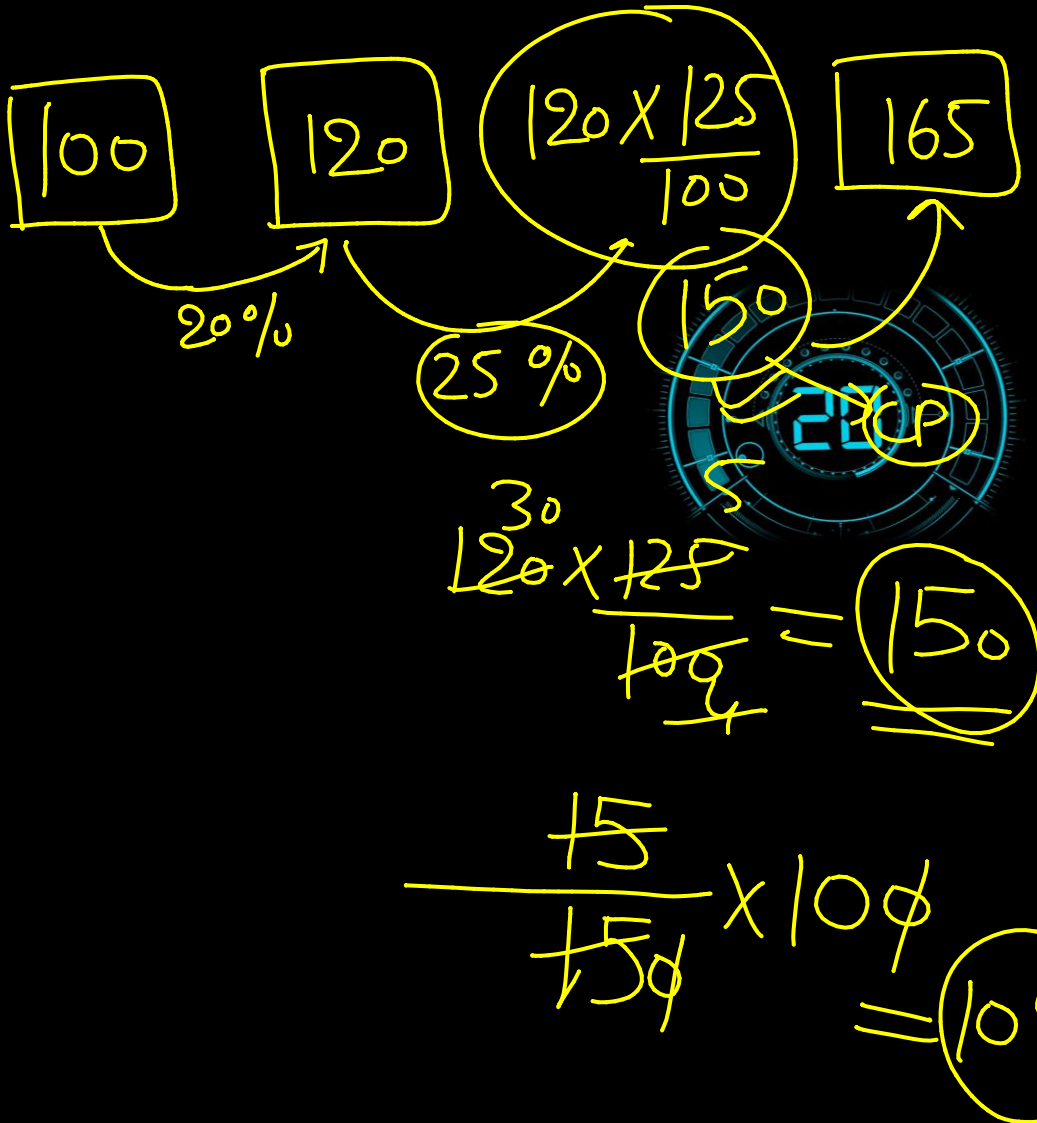 100 120 120 X 125/100 165
20%
25%
150
20 CP
30 5
120 X 125/100 4 = 150
15/150 X 100
= 10